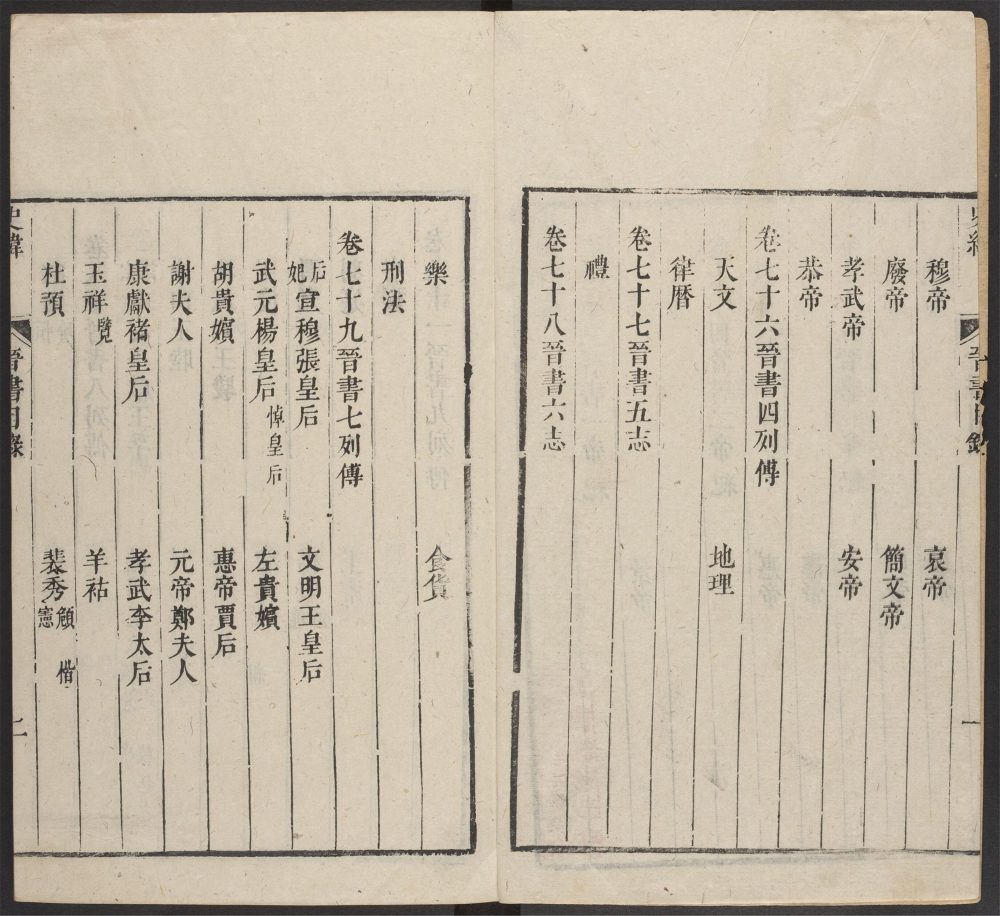 史緯 晉書目錄 一
穆帝 哀帝
廢帝 簡文帝
孝武帝 安帝
恭帝
卷七十六晉書四列傳
天文 地理
律曆
卷七十七晉書五志
禮
卷七十八晉書六志
樂 食貨
刑法
卷七十九晉書七列傳
后妃宣穆張皇后 文明王皇后
武元楊皇后 悼皇后 左貴嬪
胡貴嬪 惠帝賈后
謝夫人 元帝鄭夫人
康獻褚皇后 孝武李太后
玉祥 覽 羊祜
杜預 裴秀 頠 楷 憲
史緯 晉書目錄 二